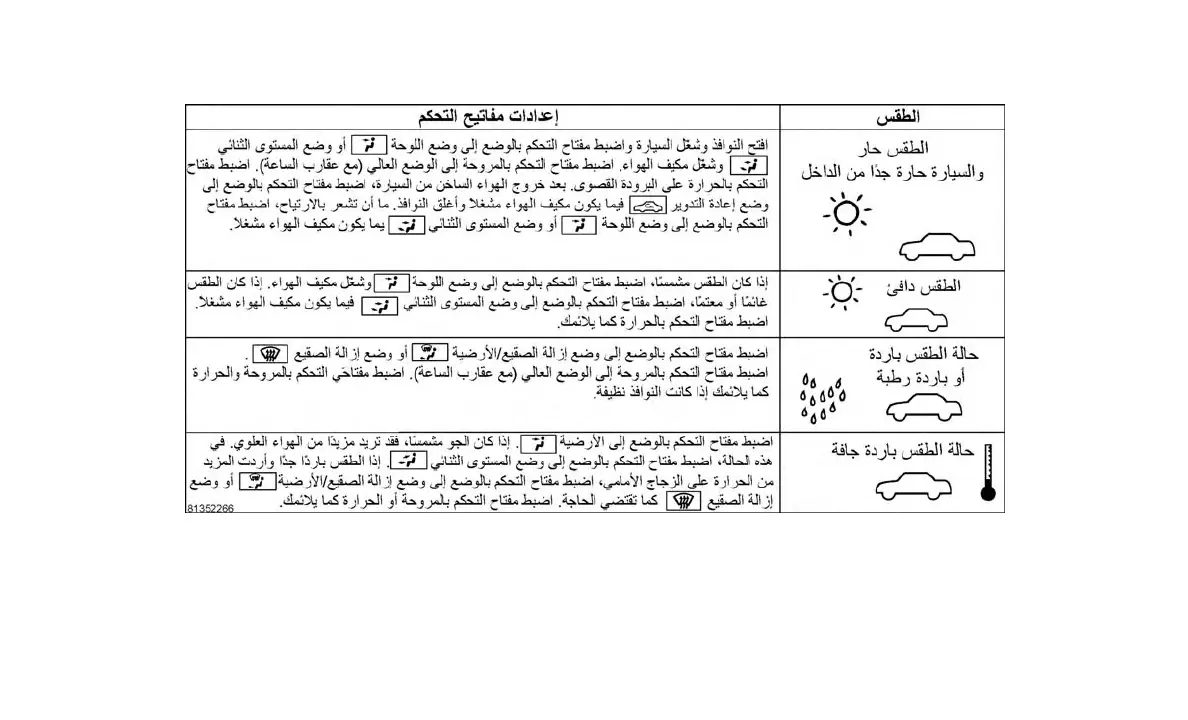 الطقس
إعدادات مفاتيح التحكم
الطقس حار
والسيارة حارة جدًا من الداخل
افتح النوافذ وشغّل السيارة واضبط مفتاح التحكم بالوضع إلى وضع اللوحة أو وضع المستوى الثنائي
وشغّل مكيف الهواء. اضبط مفتاح التحكم بالمروحة إلى الوضع العالي (مع عقارب الساعة). اضبط مفتاح
التحكم بالحرارة على البرودة القصوى. بعد خروج الهواء الساخن من السيارة، اضبط مفتاح التحكم بالوضع إلى
وضع إعادة التدوير فيما يكون مكيف الهواء مشغلاً وأغلق النوافذ. ما أن تشعر بالارتياح، اضبط مفتاح
التحكم بالوضع إلى وضع اللوحة أو وضع المستوى الثنائي يما يكون مكيف الهواء مشغلاً.
الطقس دافئ
إذا كان الطقس مشمسًا، اضبط مفتاح التحكم بالوضع إلى وضع اللوحة وشغّل مكيف الهواء. إذا كان الطقس
غائمًا أو معتمًا، اضبط مفتاح التحكم بالوضع إلى وضع المستوى الثنائي فيما يكون مكيف الهواء مشغلاً.
اضبط مفتاح التحكم بالحرارة كما يلائمك.
حالة الطقس باردة
أو باردة رطبة
اضبط مفتاح التحكم بالوضع إلى وضع إزالة الصقيع/الأرضية أو وضع إزالة الصقيع .
اضبط مفتاح التحكم بالمروحة إلى الوضع العالي (مع عقارب الساعة). اضبط مفتاحَي التحكم بالمروحة والحرارة
كما يلائمك إذا كانت النوافذ نظيفة.
حالة الطقس باردة جافة
اضبط مفتاح التحكم بالوضع إلى الأرضية . إذا كان الجو مشمسًا، فقد تريد مزيدًا من الهواء العلوي. في
هذه الحالة، اضبط مفتاح التحكم بالوضع إلى وضع المستوى الثنائي . إذا الطقس باردًا جدًا وأردت المزيد
من الحرارة على الزجاج الأمامي، اضبط مفتاح التحكم بالوضع إلى وضع إزالة الصقيع/الأرضية أو وضع
إزالة الصقيع كما تقتضي الحاجة. اضبط مفتاح التحكم بالمروحة أو الحرارة كما يلائمك.
81352266